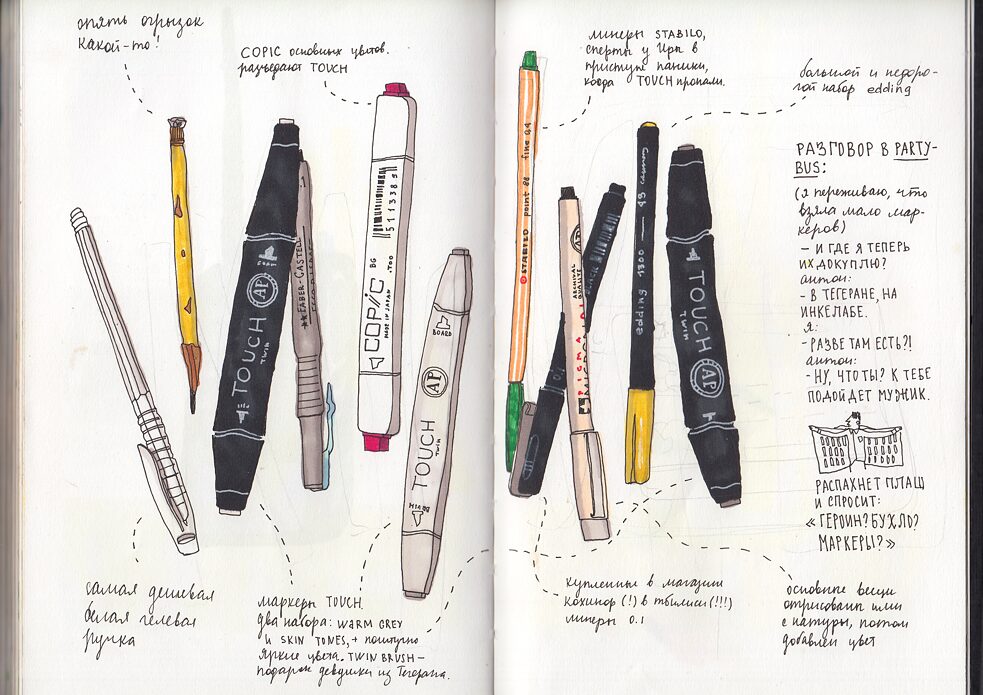 опять огрызок
какой-то!
COPIC основных цветов.
разъедают TOUCH
линеры STABILO,
сперты у Иры в
приступе паники,
когда TOUCH пропали.
большой и недоро-
гой набор edding
РАЗГОВОР В PARTY-
BUS:
(я переживаю, что
взяла мало мар-
керов)
– И ГДЕ Я ТЕПЕРЬ
ИХ ДОКУПЛЮ?
антон:
- В ТЕГЕРАНЕ, НА
ИНКЕЛАБЕ.
я:
- РАЗВЕ ТАМ ЕСТЬ?!
антон:
- НУ, ЧТО ТЫ? К ТЕБЕ
ПОДОЙДЕТ МУЖИК.
РАСПАХНЕТ ПЛАЩ
И СПРОСИТ:
«ГЕРОИН? БУХЛО?
МАРКЕРЫ?»
TOUCH
TWIN
AP
FABER-CASTELL
COPIC
BG
MADE IN JAPAN
.TOO
5113385
BOARD
AP
TOUCH
TWIN
STABILO point 88 fine 0,4
ARCHIVAL
QUALITY
edding 1300
TOUCH
TWIN
AP
самая дешевая
белая гелевая
ручка
маркеры TOUCH
два набора: WARM GREY
и SKIN TONES, + поштучно
яркие цвета. TWIN BRUSH –
подарок девушки из Тегерана.
купленные в магазине
кохинор (!) в тбилиси (!!!)
линеры 0.1
основные вещи
отрисованы ими
с натуры, потом
добавлен цвет